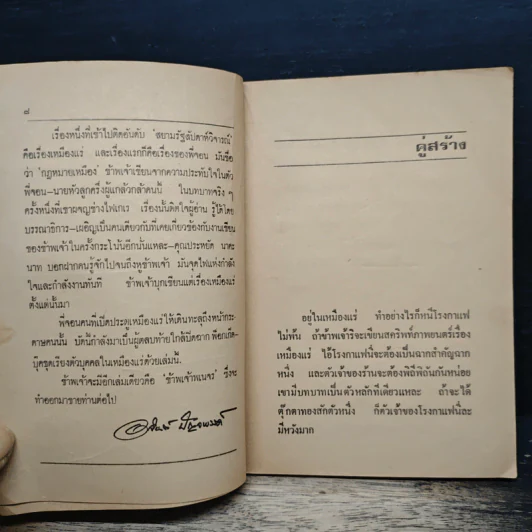 ๘
เรื่องหนึ่งที่เข้าไปติดอันดับ 'สยามรัฐสัปดาห์วิจารณ์'
คือเรื่องเหมืองแร่ และเรื่องแรกก็คือเรื่องของพี่จอน มันชื่อ
ว่า 'กฎหมายเหมือง' ข้าพเจ้าเขียนจากความประทับใจในตัว
พี่จอน–นายหัวลูกครึ่งผู้แกล้วกล้าคนนี้ ในบทบาทจริง ๆ
ครั้งหนึ่งที่เขาผจญช่างไฟเกเร เรื่องนั้นติดใจผู้อ่าน รู้ได้โดย
บรรณาธิการ–เผอิญเป็นคนเดียวกับที่เคยเกี่ยวข้องกับงานเขียน
ของข้าพเจ้าในครั้งกระโน้นอีกนั่นแหละ–คุณประหยัด นาคะ
นาท บอกฝากคนรู้จักไปจนถึงหูข้าพเจ้า มันจุดไฟแห่งกำลัง
ใจและกำลังงานทันที ข้าพเจ้าบุกเขียนแต่เรื่องเหมืองแร่
ตั้งแต่นั้นมา
พี่จอนคนที่เปิดประตูเหมืองแร่ให้เดินทะลุถึงหน้ากระ
ดาษคนนั้น บัดนี้กำลังมาเป็นผู้ตลบท้ายใกล้ปิดฉาก พ็อกเก็ต-
บุ๊คชุดเรียงตัวบุคคลในเหมืองแร่ด้วยเล่มนี้.
ข้าพเจ้าจะมีอีกเล่มเดียวคือ 'ข้าพเจ้าพเนจร' ซึ่งจะ
ทำออกมาขายท่านต่อไป
คู่สร้าง
อยู่ในเหมืองแร่ ทำอย่างไรก็หนีโรงกาแฟ
ไม่พ้น ถ้าข้าพเจ้าริจะเขียนสคริพท์ภาพยนตร์เรื่อง
เหมืองแร่ ไอ้โรงกาแฟนี่จะต้องเป็นฉากสำคัญฉาก
หนึ่ง และตัวเจ้าของร้านจะต้องพิถีพิถันกันหน่อย
เขามีบทบาทเป็นตัวหลักทีเดียวแหละ ถ้าจะได้
ตุ๊กตาทองสักตัวหนึ่ง ก็ตัวเจ้าของโรงกาแฟนี่ละ
มีหวังมาก